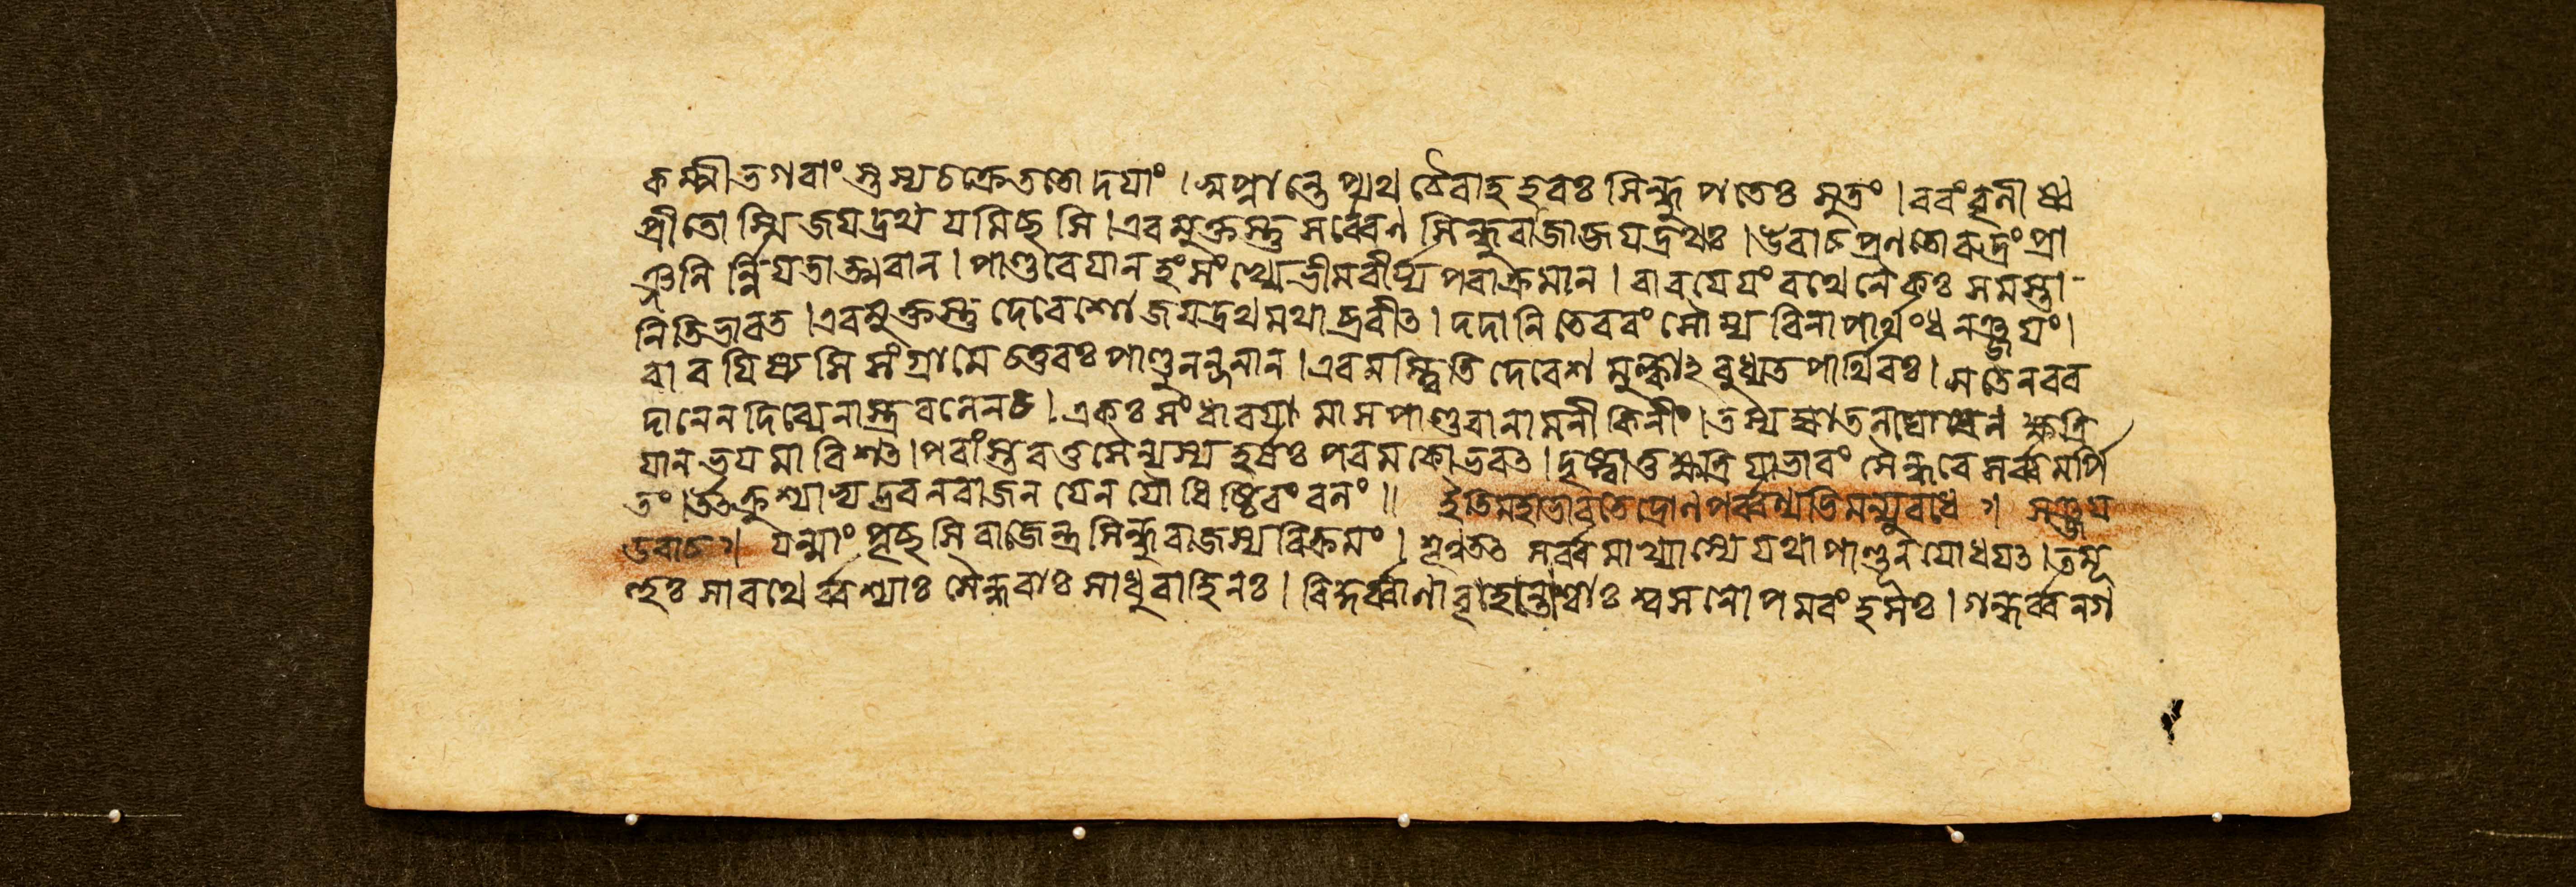 কম্পী ভগবাং স্তস্য চক্রে ততো দযাং । স্বপ্নান্তে প্যথ চৈবাহ হবঃ সিন্ধু পতেঃ সুতং । ববং বৃনীষ্ব
প্রীতোস্মি জযদ্রথ যমিচ্ছসি । এবমুক্তস্তু সর্ব্বেণ সিন্ধুবাজো জযদ্রথঃ । উবাচ প্রণতো বুদ্রং প্রা
ঞ্জনি র্ন্নিযতাত্মবান । পাণ্ডবেযানহং সংখ্যে ভীমবীর্য্য পবাক্রমান । বাবযেযং বথেনৈকঃ সমস্তা
নিতি ভাবত । এবমুক্তস্তু দেবেশো জযদ্রথমথাব্রবীত । দদানি তে ববং সৌম্য বিনা পার্থং ধনঞ্জযং ।
বাবযিষ্যসি সংগ্রামে চতুবঃ পাণ্ডুনন্দনান । এবমস্ত্বিতি দেবেশ মুক্ত্বা২বুধ্যত পার্থিবঃ । স তেন বব
দানেন দিব্যেনাস্ত্রবনেন চ । একঃ সংধাবযামাস পাণ্ডবানামনীকিনীং । তস্য জ্যাতনাঘোষেন ক্ষত্রি
যান ভযমাবিশত । পবাংস্তু তব সৈন্যস্য হর্ষঃ পবমকোভবত । দৃষ্ট্বা তু ক্ষত্রিযা ভাবং সৈন্ধবে সর্ব্বমর্পি
তং । উৎক্রুশ্যাভ্যদ্রবন বাজন যেন যৌধিষ্ঠিবং বনং ॥ ইতি মহাভাবতে দ্রোণপর্ব্বণ্যভিমন্যুবধে । সঞ্জয
উবাচ । যন্মাং পৃচ্ছসি বাজেন্দ্র সিন্ধুবাজস্য বিক্রমং । শৃণু তৎ সর্ব্বমাখ্যাস্যে যথা পাণ্ডূনযোধযত । তমূ
ণ্হুঃ সাবথের্ব্বশ্যাঃ সৈন্ধবাঃ সাধুবাহিনঃ । বিকুর্ব্বাণা বৃহন্তোশ্বাঃ শ্বসনোপমবংহসঃ । গন্ধর্ব্বনগ